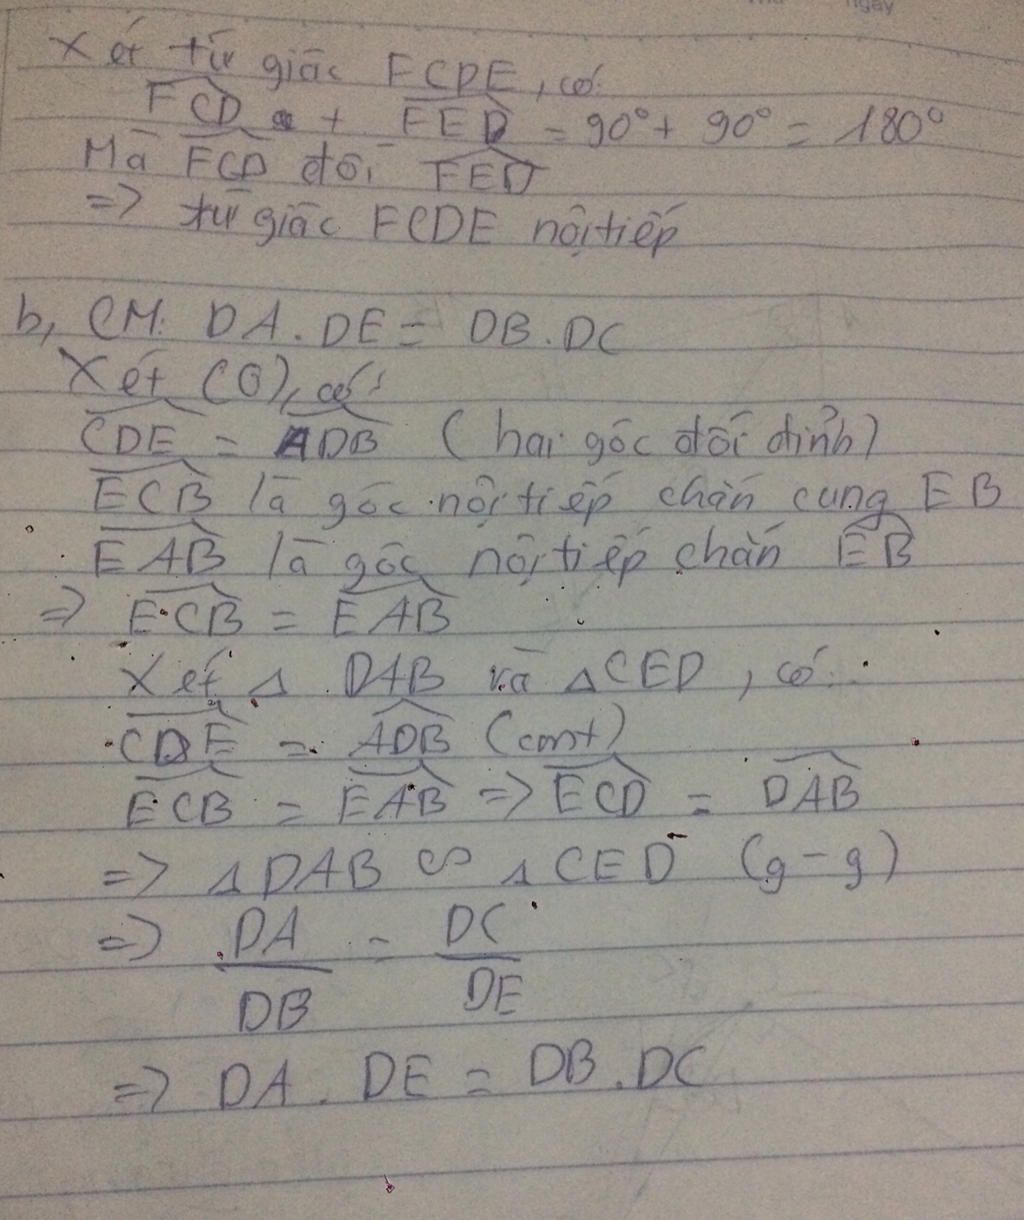 ngày
Xét tứ giác FCDE, có:
FCD + FED = 90° + 90° = 180°
Mà FCD đối FED
=> tứ giác FCDE nội tiếp
b, CM: DA.DE = DB.DC
Xét (O), có:
CDE = ADB (hai góc đối đỉnh)
ECB là góc nội tiếp chắn cung EB
EAB là góc nội tiếp chắn EB
=> ECB = EAB
Xét Δ DAB và ΔCED, có:
CDE = ADB (cmt)
ECB = EAB => ECD = DAB
=> ΔDAB ∽ ΔCED (g-g)
=> DA/DB = DC/DE
=> DA . DE = DB . DC